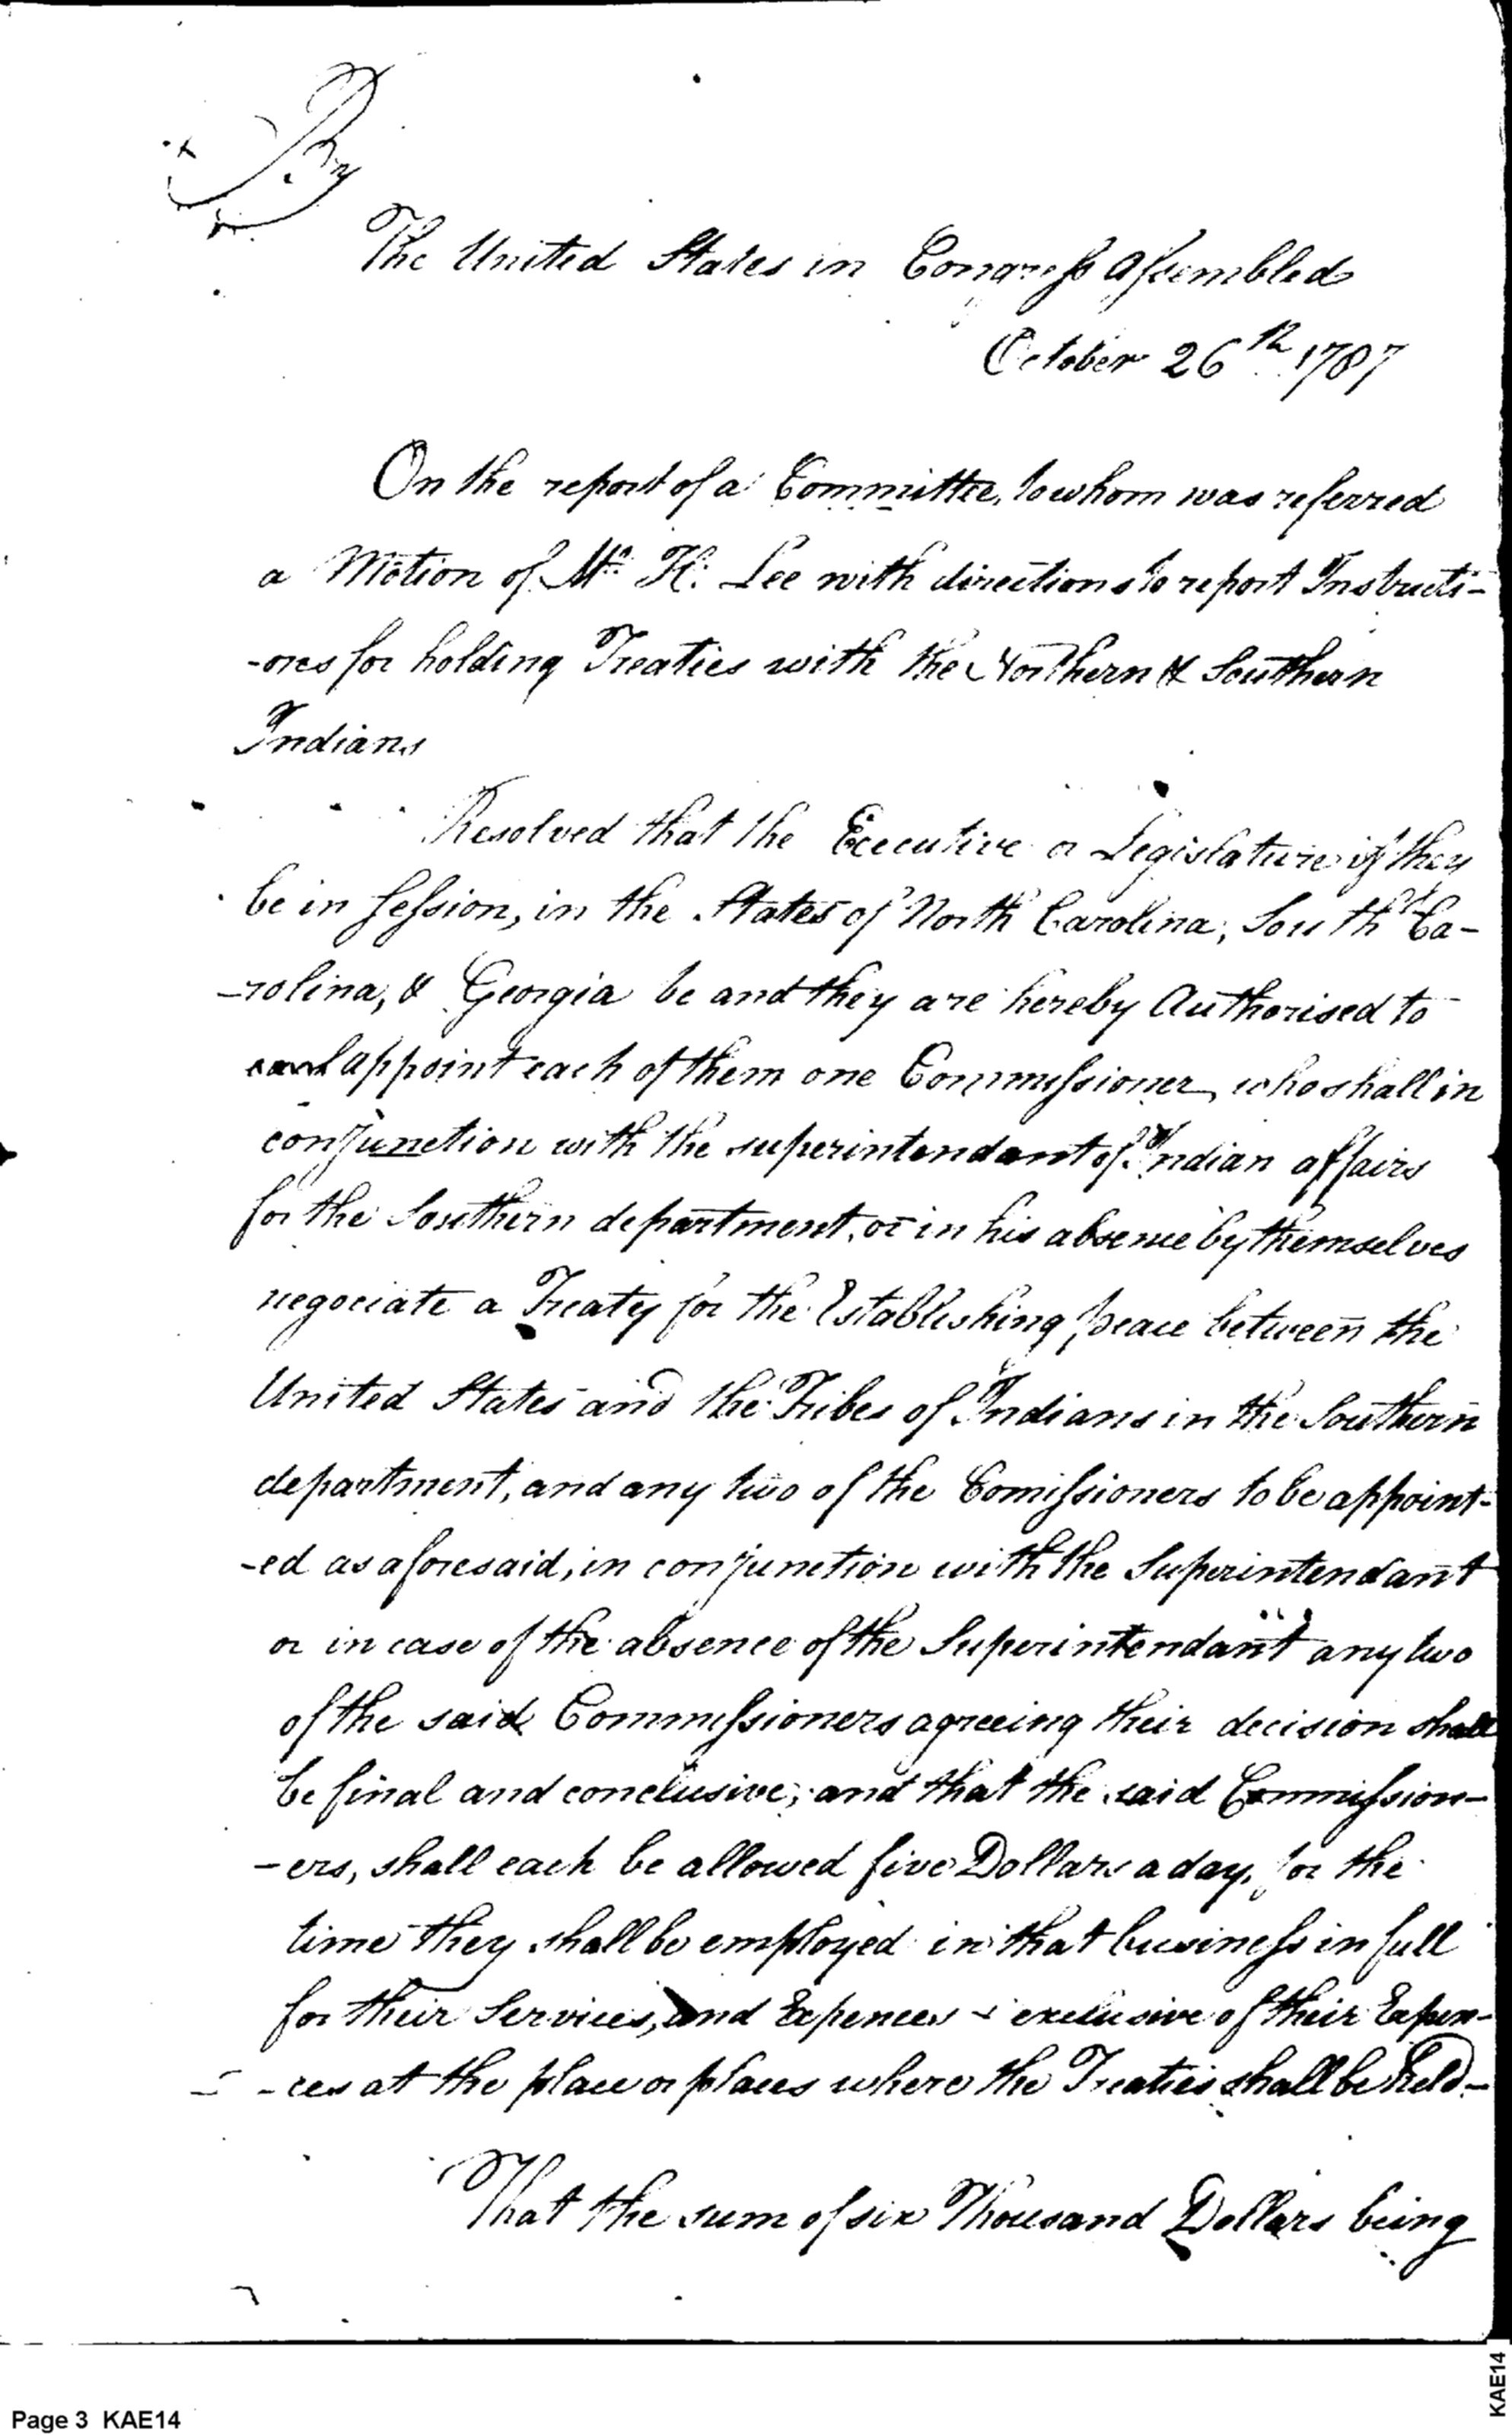 By
The United States in Congress Assembled
October 26th 1787
On the report of a Committee, to whom was referred
a Motion of Mr. H. Lee with directions to report Instructi-
-ons for holding Treaties with the Northern & Southern
Indians
Resolved that the Executive or Legislature if they
be in Session, in the States of North Carolina, South Ca-
-rolina, & Georgia be and they are hereby Authorised to
appoint each of them one Commissioner, who shall in
conjunction with the superintendant of Indian affairs
for the Southern department, or in his absence by themselves
negociate a Treaty for the Establishing peace between the
United States and the Tribes of Indians in the Southern
department, and any two of the Comissioners to be appoint-
-ed as aforesaid, in conjunction with the Superintendant
or in case of the absence of the Superintendant any two
of the said Commissioners agreeing their decision shall
be final and conclusive; and that the said Commission-
-ers, shall each be allowed five Dollars a day, for the
time they shall be employed in that business in full
for their Services, and Expences exclusive of their Expen-
-ces at the place or places where the Treaties shall be held-
That the sum of six Thousand Dollars being
Page 3 KAE14
KAE14